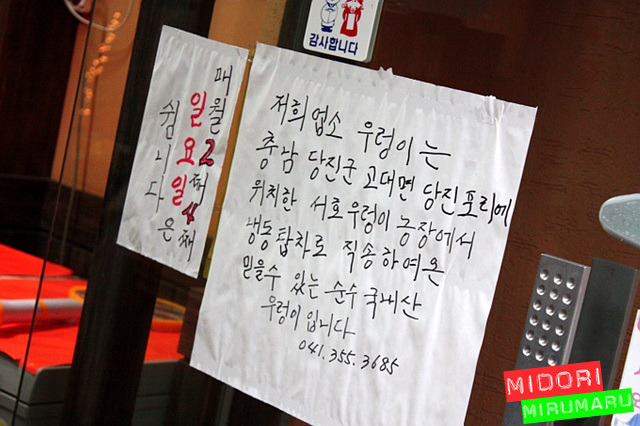 감사합니다
매월 2째 4째
일요일은
쉽니다
저희 업소 우렁이는
충남 당진군 고대면 당진포리에
위치한 서호우렁이 농장에서
냉동탑차로 직송하여온
믿을수 있는 순수국내산
우렁이 입니다
041.355.3685
MIDORI
MIRUMARU